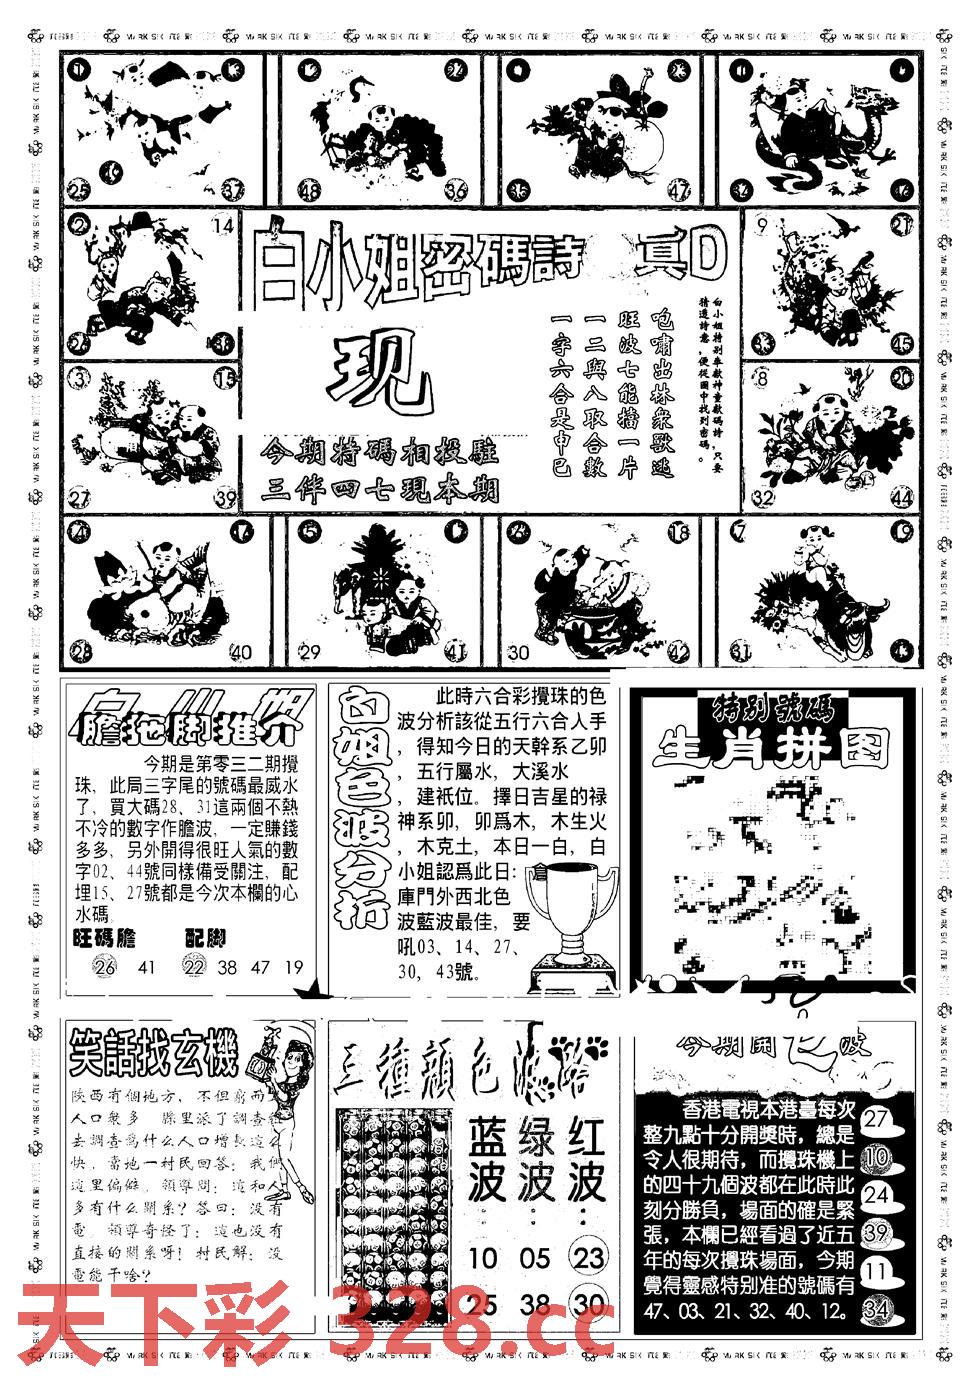 25
37
48
36
47
白小姐密碼詩 真D
现
今期特碼相投駐
三伴四七現本期
白小姐特別奉獻神童獻碼詩，只要
猜透詩意，便從圖中找到密碼。
咆嘯出林衆獸逃
旺波七能擋一片
一二與八取合數
一字六合是申巳
2
14
9
21
45
3
15
27
39
8
20
32
44
28
40
5
29
41
18
30
42
7
19
31
膽拖脚推介
今期是第零三二期攪
珠，此局三字尾的號碼最威水
了，買大碼28、31這兩個不熱
不冷的數字作膽波，一定賺錢
多多，另外開得很旺人氣的數
字02、44號同樣備受關注，配
埋15、27號都是今次本欄的心
水碼。
旺碼膽 配脚
26 41 22 38 47 19
白姐色波分析
此時六合彩攪珠的色
波分析該從五行六合人手
，得知今日的天幹系乙卯
，五行屬水，大溪水
，建衹位。擇日吉星的禄
神系卯，卯爲木，木生火
，木克土，本日一白，白
小姐認爲此日：倉
庫門外西北色
波藍波最佳，要
吼03、14、27、
30、43號。
特别號碼
生肖拼图
笑話找玄機
陝西有個地方，不但窮而且
人口衆多 縣里派了調查組
去調查爲什么人口增長這么
快，當地一村民回答：我們
這里偏僻。領導問：這和人
多有什么關系？答曰：没有
電。領導奇怪了：這也没有
直接的關系呀！村民解：没
電能干啥？
三種顔色波路
蓝波：
绿波：
红波：
10 05 23
25 38 30
今期開 波
香港電視本港臺每次
整九點十分開獎時，總是
令人很期待，而攪珠機上
的四十九個波都在此時此
刻分勝負，場面的確是緊
張，本欄已經看過了近五
年的每次攪珠場面，今期
覺得靈感特别准的號碼有
47、03、21、32、40、12。
27
10
24
39
11
34
天下彩 328.cc